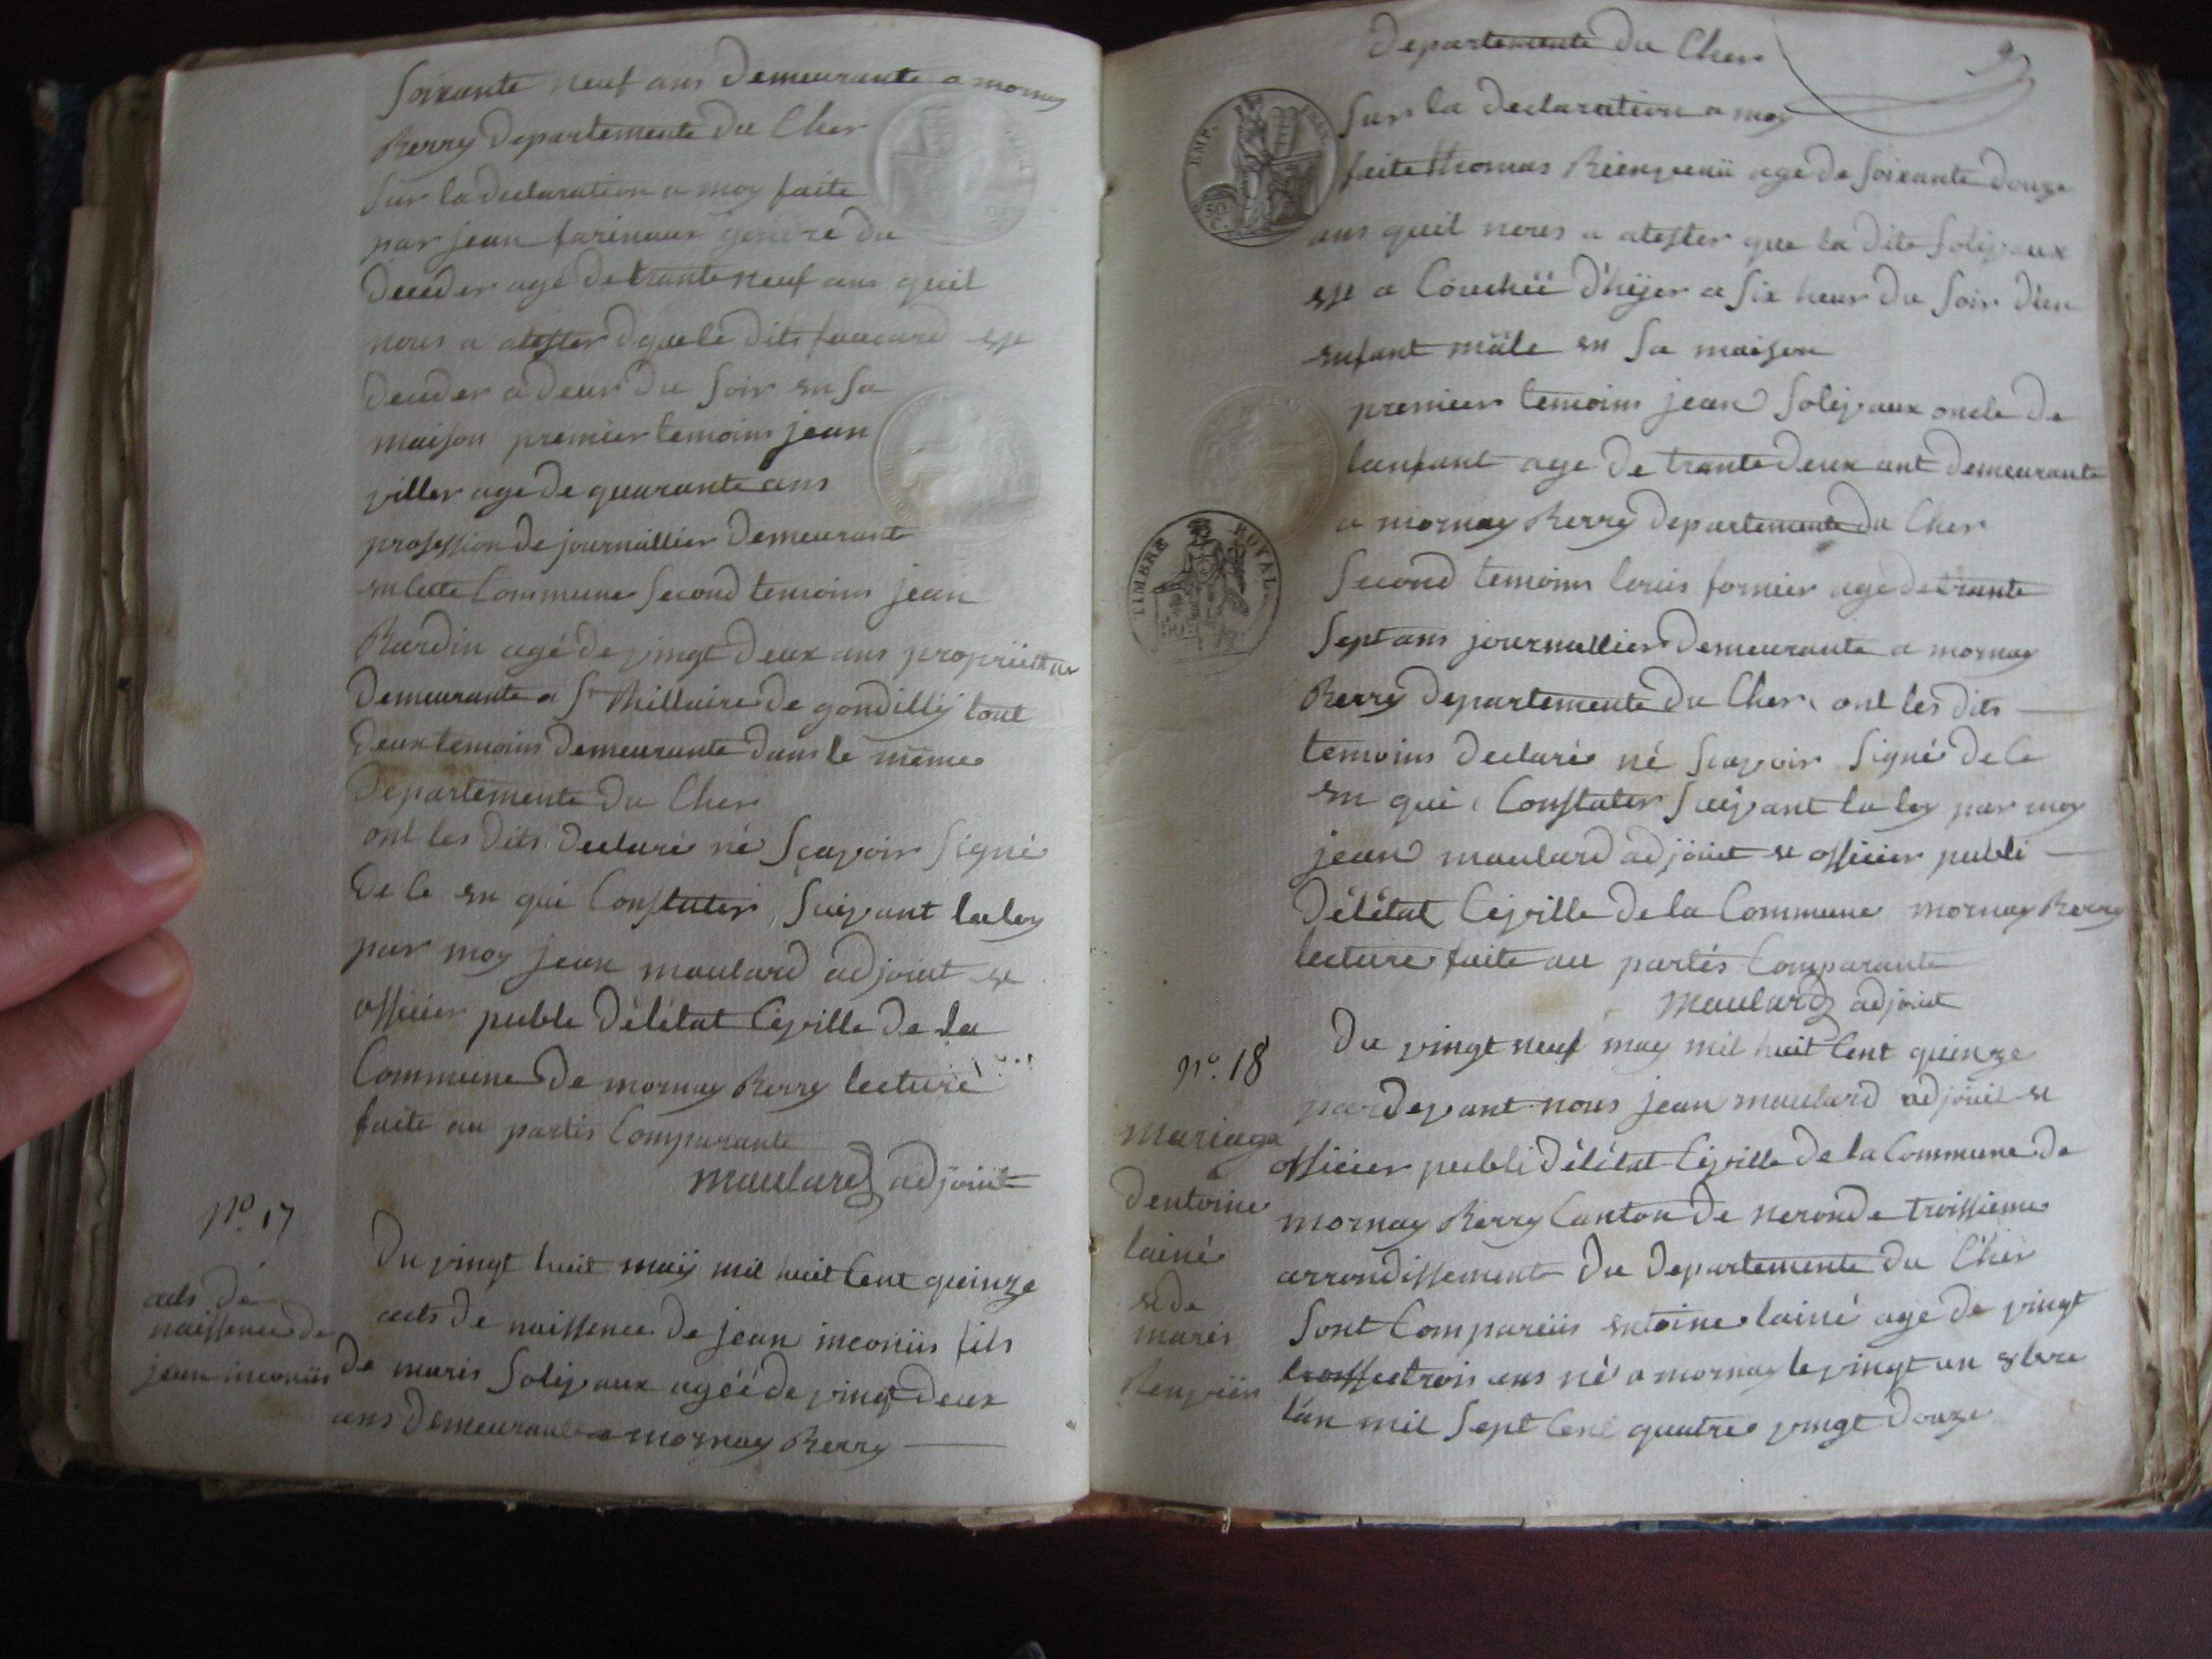 Soixante neuf ans Demeurante a mornay
Berry Departemente Du Cher
Sur la declaration a moy faite
par jean farinaux gendre du
Deceder age de trante neuf ans quil
nous a atester que le dits faucard est
Deceder a deux du Soir en Sa
maison premier temoins jean
viller age de quarante ans
profession de journallier Demeurant
en cette Commune Second temoins jean
Bardin agé de vingt deux ans propriettaire
Demeurante a St hillaire de gondilly tout
Deux temoins Demeurante dans le même
Departemente Du Cher
ont les dits Declaré né Sçavoir Signé
De le en qui Constater, Suivant la loy
par moy jean maulard adjoint et
officier puble Délétat Civille de la
Commune De mornay Berry lecture
faite au partis Comparante
maulard adjoint
No. 17
acts de
naissence de
jean inconüs
Du vingt huit may mil huit Cent quinze
acts de naissence de jean inconüs fils
De maris Solivaux agéé de vingt deux
ans Demeurante a mornay Berry
Departemente Du Cher
EMP. FRAN.
Sur la Declaration a moy
faite thomas Bienvenü age de Soixante Douze
ans quil nous a atester que la Dite Solivaux
est a Couchéé D'hijer a Six heur Du Soir D'un
enfant mâle en Sa maison
premier temoins jean Solivaux oncle De
lanfant age De trante Deux ant Demeurante
a mornay Berry Departemente Du Cher
TIMBRE ROYAL
Second temoins louis fornier age de trante
Sept ans journallier Demeurante a mornay
Berry Departemente Du Cher, ont les Dits
temoins Declaré né Sçavoir Signé De le
en qui Constater Suivant la loy par moy
jean maulard adjoint et officier publi
Délétat Civille De la Commune mornay Berry
lecture faite au partés Comparante
Maulard adjoint
No. 18
Mariage
Dentoine
lainé
et de
maris
Benvüin
Du vingt neuf may mil huit Cent quinze
par Devant nous jean maulard adjoint et
officier publi Délétat Civille De la Commune De
mornay Berry Canton De neronde troissieme
arrondissemente Du Departemente Du Cher
Sont Comparüs entoine lainé age De vingt
trois ans né a mornay le vingt un
lán mil Sept Cent quatre vingt Douze